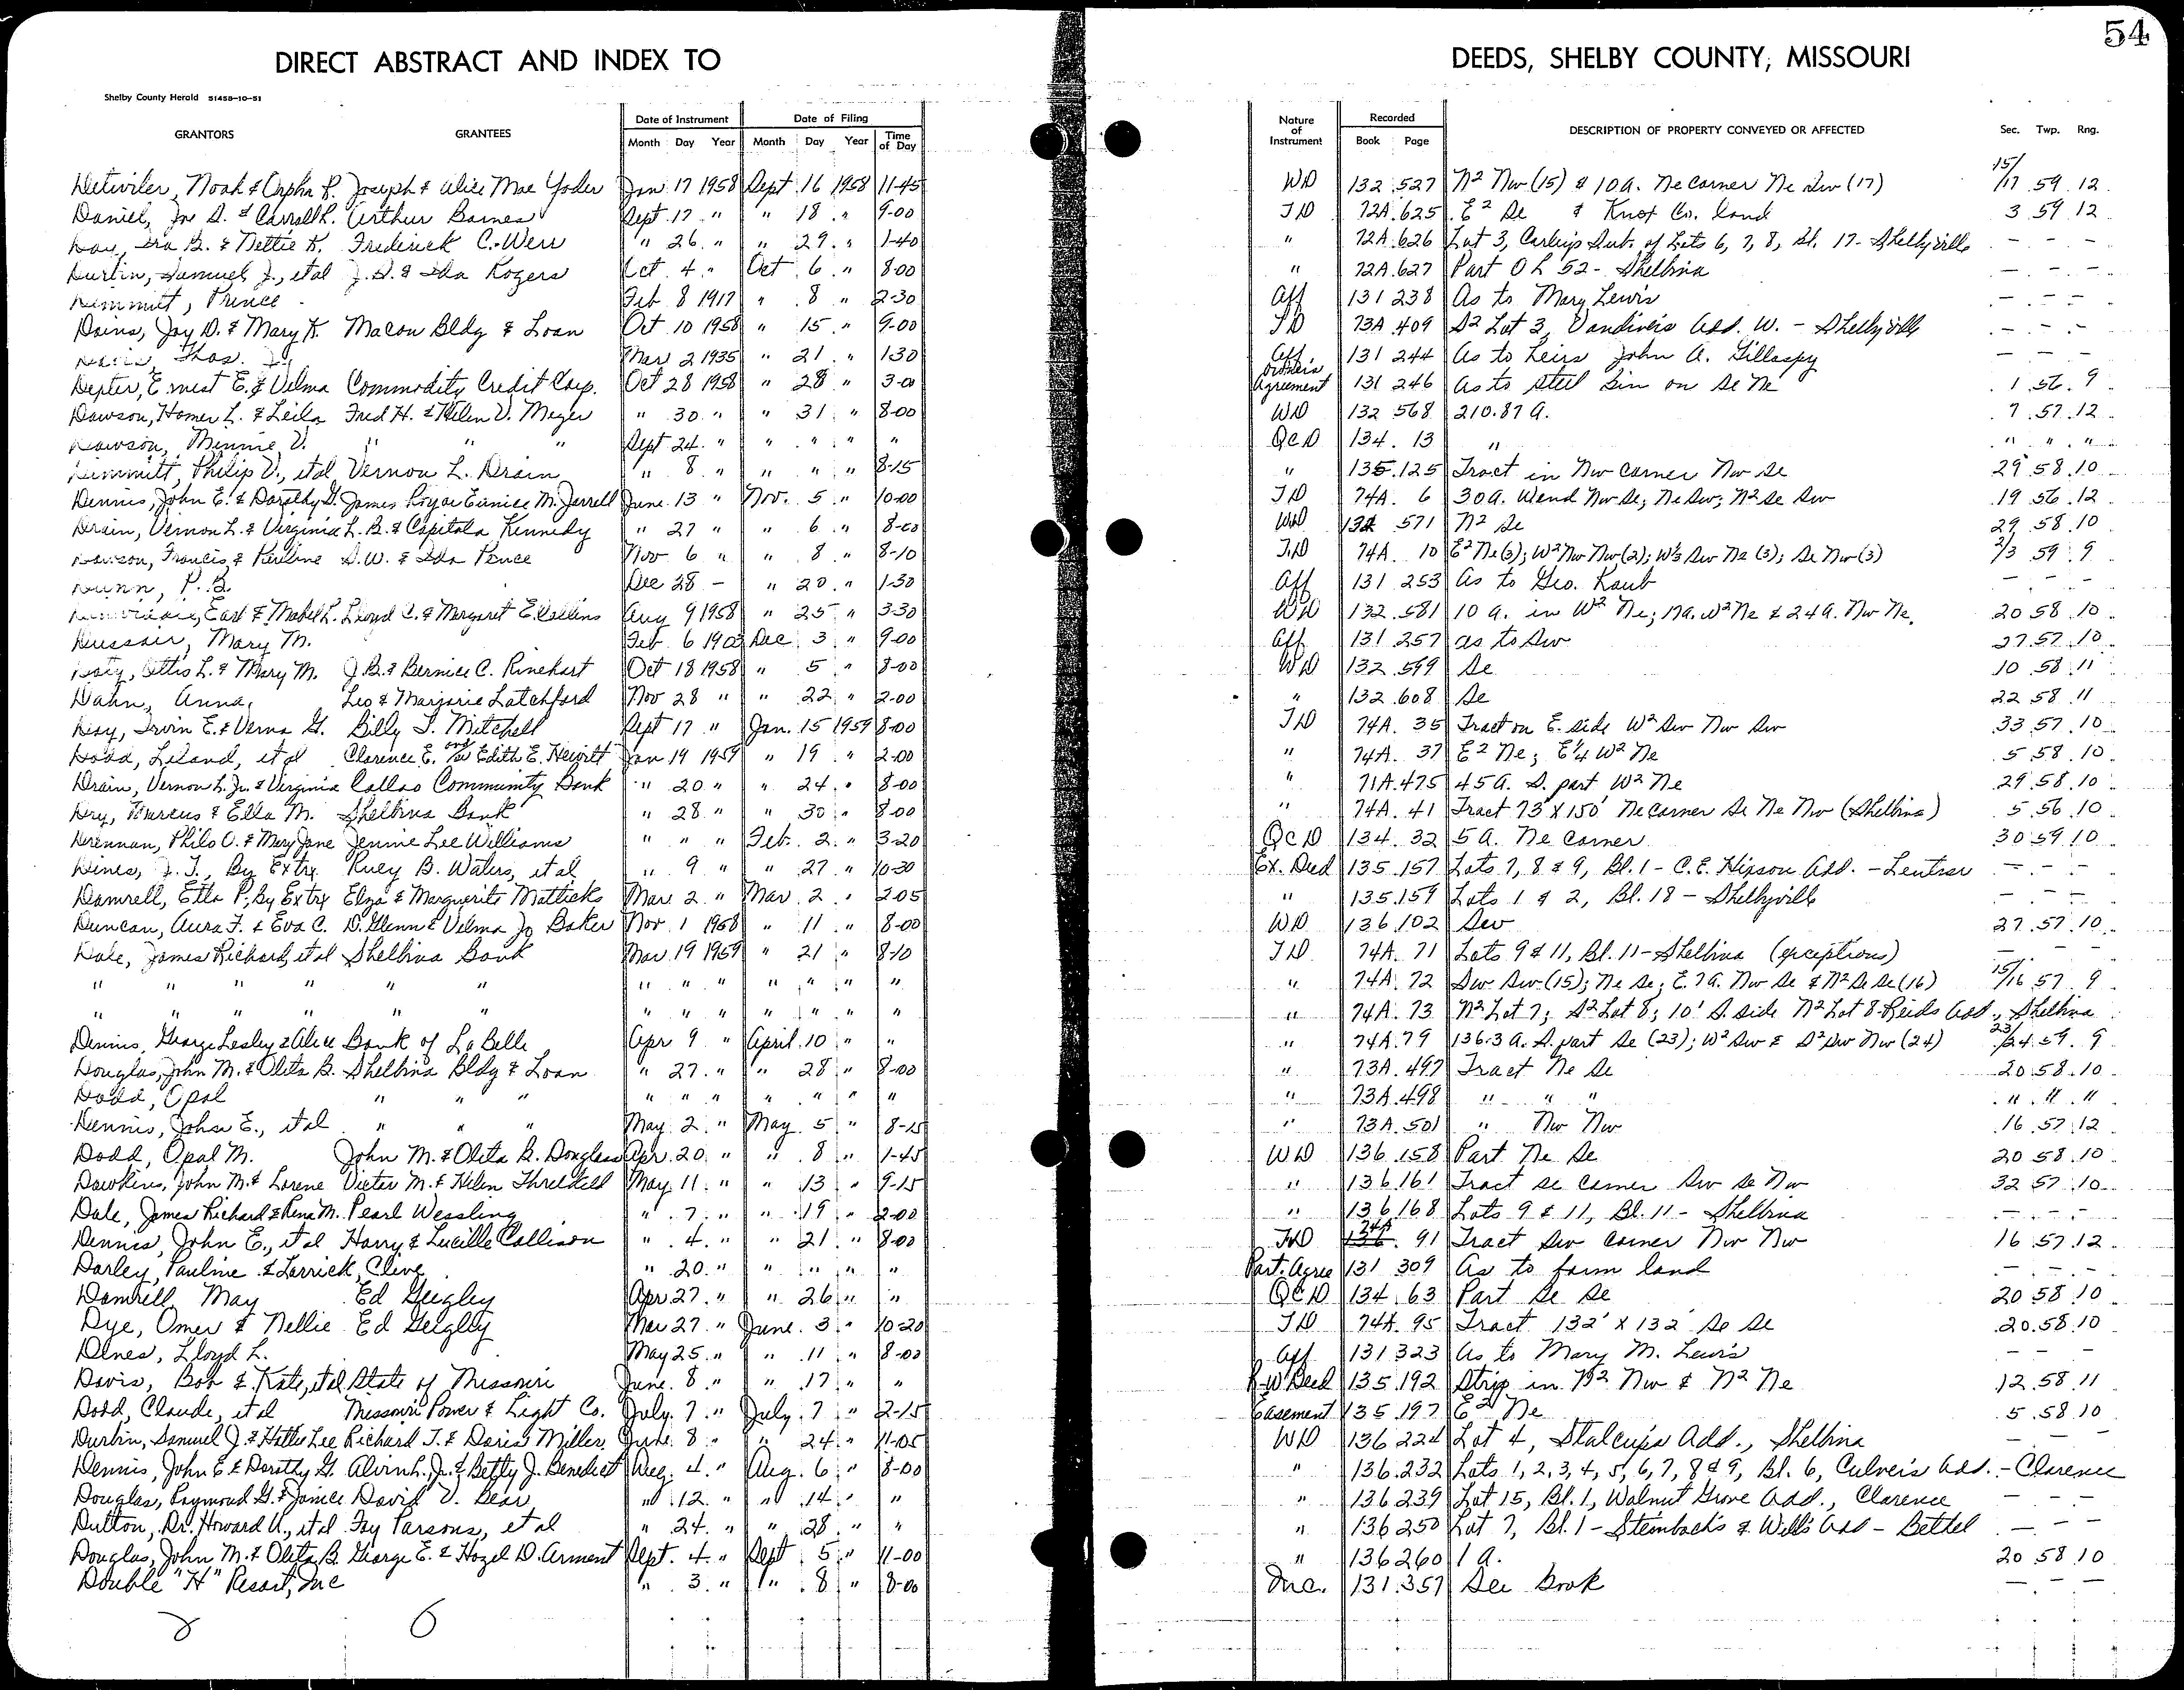 54
DIRECT ABSTRACT AND INDEX TO DEEDS, SHELBY COUNTY, MISSOURI
Shelby County Herald 51458-10-51
GRANTORS GRANTEES Date of Instrument Date of Filing Nature of Instrument Recorded DESCRIPTION OF PROPERTY CONVEYED OR AFFECTED Sec. Twp. Rng.
Month Day Year Month Day Year Time of Day Book Page
Detwiler, Noah & Orpha R. Joseph & Alice Mae Yoder Jan 17 1958 Sept 16 1958 11-45 WD 132 527 N2 Nw (15) & 10 a. Ne corner Ne Nw (17) 15/17 59 12
Daniel, Jr. & Carroll R. Arthur Barnes Sept 17 " " 18 " 9-00 TD 72A 625 E2 Se & Knox Co. land 3 59 12
Day, Ira B. & Nettie K. Frederick C. Weir " 26 " " 29 " 1-40 " 72A 626 Lot 3, Sub. of Lots 6, 7, 8, Bl. 17 - Shelbyville - - -
Durbin, Samuel J., et al J.D. & Ida Rogers Oct 4 " Oct 6 " 8-00 " 72A 627 Part O L 52 - Shelbina - - -
Dimmitt, Prince Feb 8 1917 " 8 " 2-30 Aff 131 238 As to Mary Lewis - - -
Dains, Jay D. & Mary K. Macon Bldg & Loan Oct 10 1958 " 15 " 9-00 TD 73A 409 S2 Lot 3, Vandiver's Add. W. - Shelbyville - - -
Thos. Mar 2 1935 " 21 " 1-30 Aff 131 244 As to heirs John A. Gillaspy - - -
Depter, Ernest E. & Velma Commodity Credit Corp. Oct 28 1958 " 28 " 3-00 Owners Agreement 131 246 As to steel bin on Se Ne 1 56 9
Dawson, Homer L. & Leila Fred H. & Helen V. Meyer " 30 " " 31 " 8-00 WD 132 568 210.87 a. 7 57 12
Dawson, Minnie V. " " " Sept 24 " " " " " QCD 134 13 " " " "
Dimmitt, Philip V., et al Vernon L. Drain " 8 " " " " 8-15 " 135 125 Tract in Nw Corner Nw Se 29 58 10
Dennis, John E. & Dorothy G. James Roy or Eunice M. Jarrell June 13 " Nov. 5 " 10-00 TD 74A 6 30 a. W end Nw Se; Ne Sw; N2 Se Sw 19 56 12
Drain, Vernon L. & Virginia L. B. & Capitola Kennedy " 27 " " 6 " 8-00 WD 132 571 N2 Se 29 58 10
Dawson, Francis & Pauline S.W. & Ida Pence Nov 6 " " 8 " 8-10 TD 74A 10 E2 Ne (3); W2 Nw Nw (2); W1/3 Sw Ne (3); Se Nw (3) 2/3 59 9
Dunn, P. B. Dec 28 - " 20 " 1-30 Aff 131 253 As to Geo. Raub - - -
Earl & Mabel L. Lloyd C. & Margaret E. Collins Aug 9 1958 " 25 " 3-30 WD 132 581 10 a. in W2 Ne; 17 a. W2 Ne & 24 a. Nw Ne 20 58 10
Mary M. Feb 6 1903 Dec 3 " 9-00 Aff 131 257 as to Sw 27 57 10
Doty, Ottis L. & Mary M. J.B. & Bernice C. Rinehart Oct 18 1958 " 5 " 8-00 WD 132 599 Se 10 58 11
Dahn, Anna Leo & Marjorie Latchford Nov 28 " " 22 " 2-00 " 132 608 Se 22 58 11
Day, Irvin E. & Verna G. Billy J. Mitchell Sept 17 " Jan. 15 1959 8-00 TD 74A 35 Tract on E. side W2 Sw Nw Sw 33 57 10
Dodd, Leland, et al Clarence E. and/or Edith E. Hewitt Jan 19 1959 " 19 " 2-00 " 74A 37 E2 Ne; E1/4 W2 Ne 5 58 10
Drain, Vernon L. Jr. & Virginia Callao Community Bank " 20 " " 24 " 8-00 " 71A 475 45 a. S. part W2 Ne 29 58 10
Dry, Marcus & Ella M. Shelbina Bank " 28 " " 30 " 8-00 " 74A 41 Tract 73' X 150' Ne corner Se Ne Nw (Shelbina) 5 56 10
Drennan, Philo O. & Mary Jane Jennie Lee Williams " " " Feb. 2 " 3-20 QCD 134 32 5 a. Ne Corner 30 59 10
Dines, J. T., By Extrx Ruey B. Waters, et al " 9 " " 27 " 10-30 Ex. Deed 135 157 Lots 7, 8 & 9, Bl. 1 - C.E. Hipson Add. - Lentner - - -
Damrell, Etta P., By Extrx Elza & Marguerite Matticks Mar 2 " Mar 2 " 2-05 " 135 159 Lots 1 & 2, Bl. 18 - Shelbyville - - -
Duncan, Aura F. & Eva C. D. Glenn & Velma Jo Baker Nov 1 1958 " 11 " 8-00 WD 136 102 Sw 27 57 10
Dale, James Richard, et al Shelbina Bank Mar 19 1959 " 21 " 8-10 TD 74A 71 Lots 9 & 11, Bl. 11 - Shelbina (exceptions) - - -
" " " " " " " " " " " " " " 74A 72 Sw Sw (15); Ne Se; E. 7 a. Nw Se & N2 Se Se (16) 15/16 57 9
" " " " " " " " " " " " " " 74A 73 N2 Lot 7; S2 Lot 8; 10' S. side N2 Lot 8 Reids Add., Shelbina
Dennis, George Lesley & Alice Bank of La Belle Apr 9 " April 10 " " " 74A 79 136.3 a. S. part Se (23); W2 Sw & S2 Sw Nw (24) 23/24 59 9
Douglas, John M. & Olita B. Shelbina Bldg & Loan " 27 " " 28 " 8-00 " 73A 497 Tract Ne Se 20 58 10
Dodd, Opal " " " " " " " " " " " 73A 498 " " " " " "
Dennis, John E., et al " " " May 2 " May 5 " 8-15 " 73A 501 " Nw Nw 16 57 12
Dodd, Opal M. John M. & Olita B. Douglass Apr. 20 " " 8 " 1-45 WD 136 158 Part Ne Se 20 58 10
Dawkins, John M. & Lorene Victor M. & Helen Threlkeld May 11 " " 13 " 9-15 " 136 161 Tract Se Corner Sw Se Nw 32 57 10
Dale, James Richard & Rena M. Pearl Wessling " 7 " " 19 " 2-00 " 136 168 Lots 9 & 11, Bl. 11 - Shelbina - - -
Dennis, John E., et al Harry & Lucille Collison " 4 " " 21 " 8-00 TD 74A 91 Tract Sw corner Nw Nw 16 57 12
Darley, Pauline & Larrick, Clive " 20 " " " " " Part. Agree 131 309 As to farm land - - -
Damrell May Ed Geigley Apr 27 " " 26 " " QCD 134 63 Part Se Se 20 58 10
Dye, Omer & Nellie Ed Geiglly Mar 27 " June 3 " 10-20 TD 74A 95 Tract 132' X 132' Se Se 20 58 10
Dines, Lloyd L. May 25 " " 11 " 8-00 Aff 131 323 As to Mary M. Lewis - - -
Davis, Bob & Kate, et al State of Missouri June 8 " " 17 " " R-W Deed 135 192 Strip in N2 Nw & N2 Ne 12 58 11
Dodd, Claude, et al Missouri Power & Light Co. July 7 " July 7 " 2-15 Easement 135 197 E2 Ne 5 58 10
Durbin, Samuel J. & Hattie Lee Richard T. & Doris Miller June 8 " " 24 " 11-05 WD 136 224 Lot 4, Stalcup's Add., Shelbina - - -
Dennis, John E. & Dorothy G. Alvin L., Jr. & Betty J. Benedict Aug. 4 " Aug. 6 " 8-00 " 136 232 Lots 1, 2, 3, 4, 5, 6, 7, 8 & 9, Bl. 6, Culver's Add. - Clarence
Douglas, Raymond G. & Janice David V. Bear " 12 " " 14 " " " 136 239 Lot 15, Bl. 1, Walnut Grove Add., Clarence - - -
Dutton, Dr. Howard U., et al Fay Parsons, et al " 24 " " 28 " " " 136 250 Lot 7, Bl. 1 - Steinbach's & Will's Add - Bethel - - -
Douglas, John M. & Olita B. George E. & Hazel D. Arment Sept. 4 " Sept 5 " 11-00 " 136 260 1 a. 20 58 10
Double "H" Resort, Inc " 3 " " 8 " 8-00 Inc. 131 357 See Book - - -
6